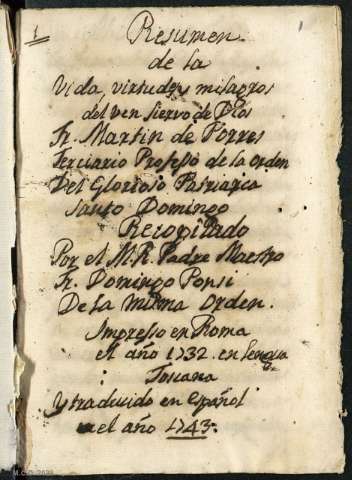 1
Resumen
de la
Vida, virtudes y milagros
del ven siervo de Dios
Fr. Martin de Porres
Terciario Professo de la Orden
Del Glorioso Patriarca
Santo Domingo
Recopilado
Por el M. R. Padre Maestro
Fr. Domingo Ponsi
De la misma Orden.
Impresso en Roma
el año 1732. en lengua
Toscana
Y traducido en español
el año 1743.